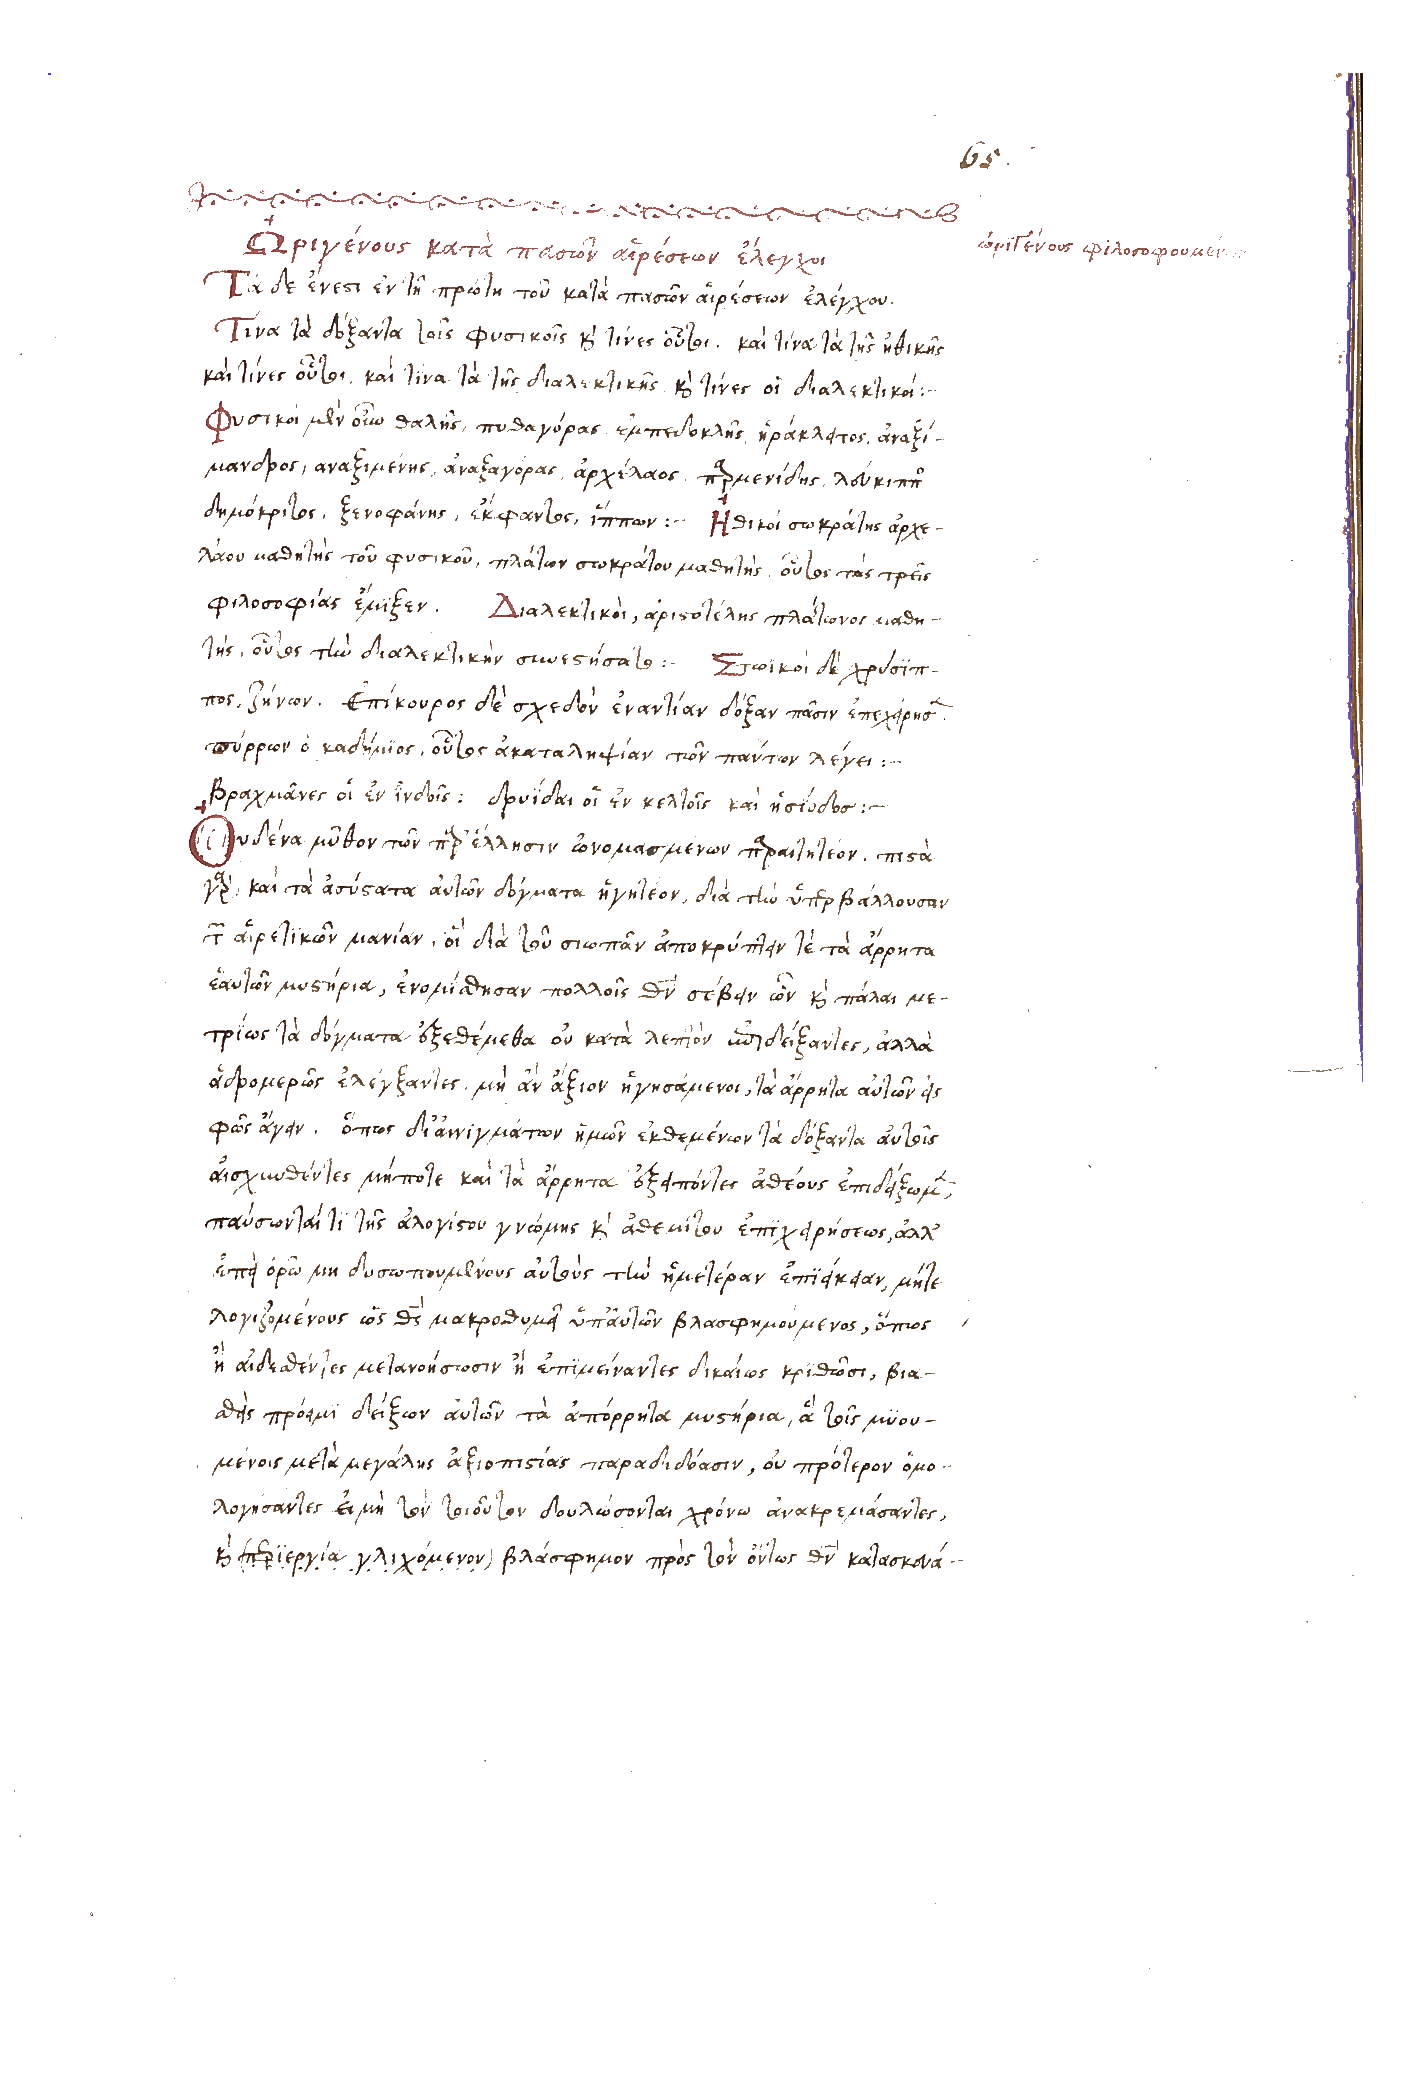 65.
Ὠριγένους κατὰ πασῶν αἱρέσεων ἔλεγχοι
ὠριγένους φιλοσοφουμέν
Τά δε ἔνεστι ἐν τῇ πρώτῃ τοῦ κατὰ πασῶν αἱρέσεων ἐλέγχου.
Τίνα τὰ δόξαντα τοῖς φυσικοῖς κὶ τίνες οὗτοι. καὶ τίνα τὰ τῆς ἠθικῆς
καὶ τίνες οὗτοι. καὶ τίνα τὰ τῆς διαλεκτικῆς κὶ τίνες οἱ διαλεκτικοί:-
Φυσικοὶ μὲν οὖν θαλῆς, πυθαγόρας, ἐμπεδοκλῆς, ἡράκλειτος, ἀναξί-
μανδρος, αναξιμένης, ἀναξαγόρας, ἀρχέλαος, παρμενίδης, λεύκιππος
δημόκριτος, ξενοφάνης, ἔκφαντος, ἵππων:- Ἠθικοί σωκράτης ἀρχε-
λάου μαθητὴς τοῦ φυσικοῦ, πλάτων σωκράτου μαθητής, οὗτος τὰς τρεῖς
φιλοσοφίας ἔμιξεν. Διαλεκτικοὶ, ἀριστοτέλης πλάτωνος μαθη-
τής, οὗτος τὴν διαλεκτικὴν συνεστήσατο:- Στωϊκοὶ δὲ χρύσιπ-
πος, ζήνων. Επίκουρος δὲ σχεδὸν ἐναντίαν δόξαν πᾶσιν ἐπεχείρησε.
πύρρων ὁ καδήμιος, οὗτος ἀκαταληψίαν τῶν πάντων λέγει:-
Βραχμᾶνες οἱ ἐν ἰνδοῖς: δρυΐδαι οἱ ἐν κελτοῖς καὶ ἡσίοδος:-
Οὐδένα μῦθον τῶν παρ' ἕλλησιν ὠνομασμένων παραιτητέον. πιστὰ
γὰρ καὶ τὰ ἀσύστατα αὐτῶν δόγματα ἡγητέον, διὰ τὴν ὑπερβάλλουσαν
τῶν αἱρετικῶν μανίαν, οἳ διὰ τοῦ σιωπᾶν ἀποκρύπτειν τὲ τὰ ἄρρητα
ἑαυτῶν μυστήρια, ἐνομίσθησαν πολλοῖς θεὸν σέβειν ὧν κὶ πάλαι με-
τρίως τὰ δόγματα ἐξεθέμεθα οὐ κατὰ λεπτὸν ἐπιδείξαντες, ἀλλὰ
ἁδρομερῶς ἐλέγξαντες. μὴ ἀν ἄξιον ἡγησάμενοι, τὰ ἄρρητα αὐτῶν εἰς
φῶς ἄγειν. ὅπως δι' αἰνιγμάτων ἡμῶν ἐκθεμένων τὰ δόξαντα αὐτοῖς
αἰσχυνθέντες μήποτε καὶ τὰ ἄρρητα ἐξειπόντες ἀθέους ἐπιδείξωμεν,
παύσωνταί τι τῆς ἀλογίστου γνώμης κὶ ἀθεμίτου ἐπιχειρήσεως, ἀλλ'
ἐπεὶ ὁρῶ μη δυσωπουμένους αὐτοὺς τὴν ἡμετέραν ἐπιείκειαν, μήτε
λογιζομένους ὡς θεὸς μακροθυμεῖ ὑπ' αὐτῶν βλασφημούμενος, ὅπως
ἢ αἰδεσθέντες μετανοήσωσιν ἢ ἐπιμείναντες δικαίως κριθῶσι, βια-
σθεὶς πρόειμι δείξων αὐτῶν τὰ ἀπόρρητα μυστήρια, ἃ τοῖς μυου-
μένοις μετὰ μεγάλης ἀξιοπιστίας παραδιδόασιν, οὐ πρότερον ὁμο-
λογήσαντες εἰ μὴ τὸν τοιοῦτον δουλώσονται χρόνω ἀνακρεμάσαντες,
κὶ (περιεργία γλιχόμενον) βλάσφημον πρὸς τὸν ὄντως θεὸν κατασκευά-